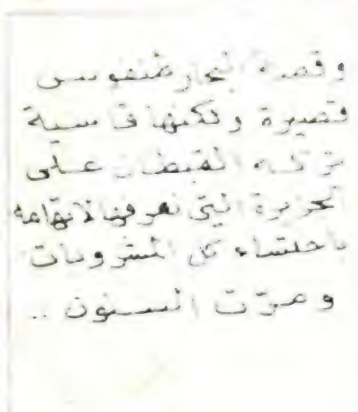 وقصة البحار طنفوس
قصيرة ولكنها قاسية
تركه القبطان على
الجزيرة التي نعرفها لاتهامه
باحتساء كل المشروبات
ومرّت السنون ..